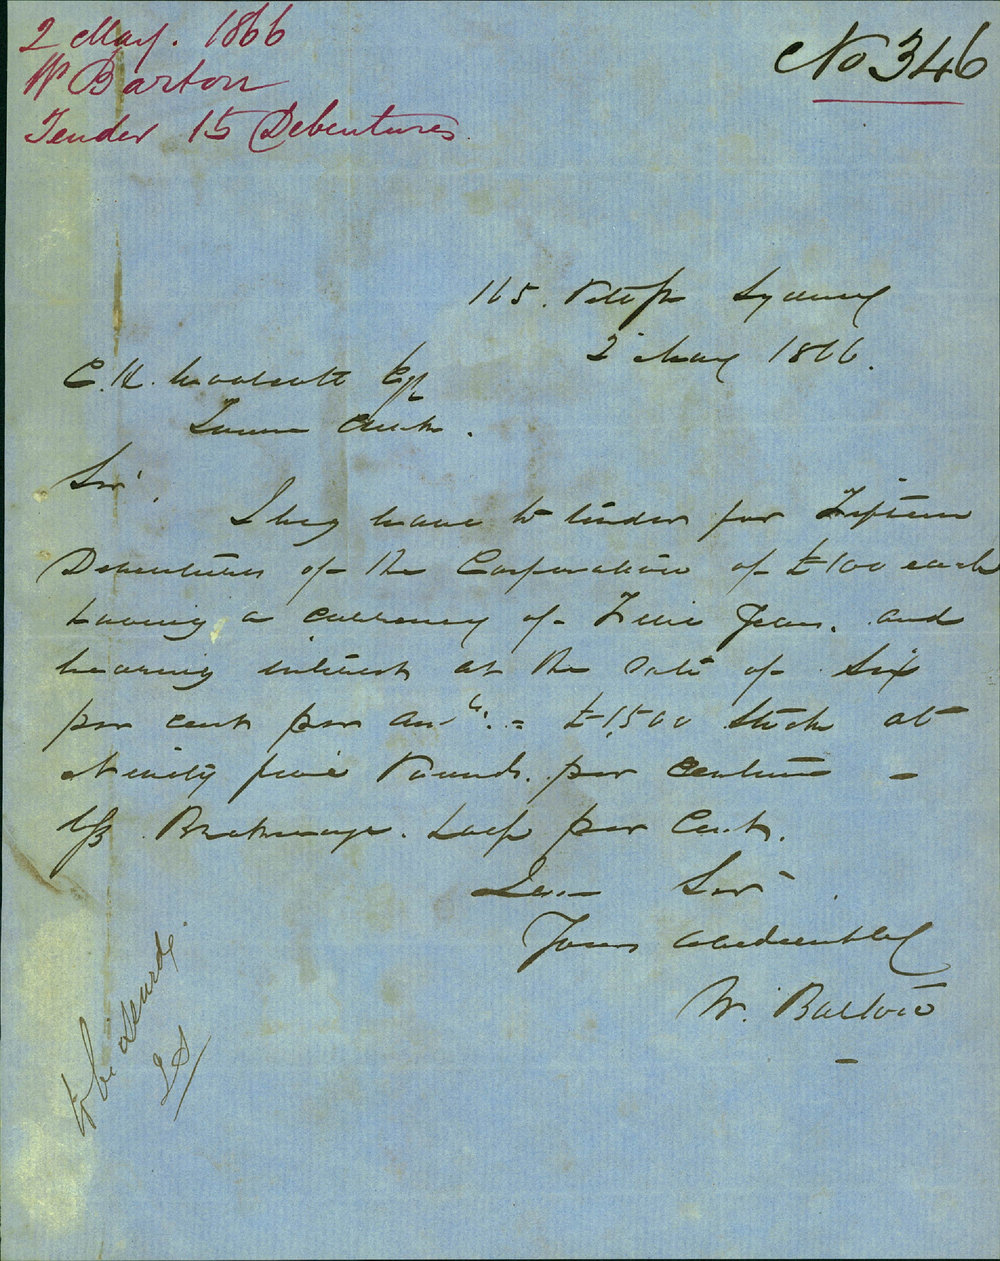 2 May. 1866
W Barton
Tender 15 Debentures
No 346
165. Pitt St Sydney
2 May 1866.
C. H. Woolcott Esq
Town Clerk.
Sir,
I beg leave to tender for Fifteen
Debentures of the Corporation of £100 each
having a currency of Five Years. and
bearing interest at the rate of Six
per cent per ann. = £1,500 Stock at
Ninety five Pounds. per centum -
less Brokerage. half per Cent.
Sir
Yours obediently
W. Barton
to be